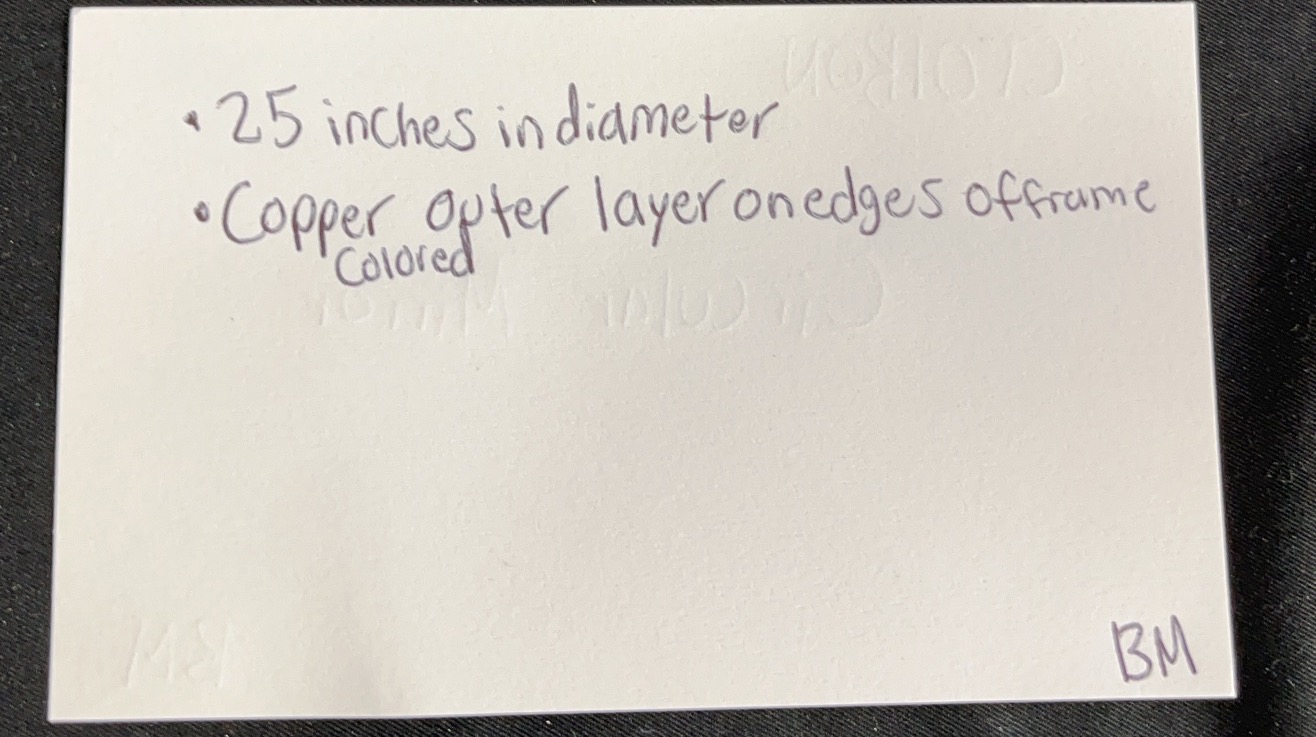 • 25 inches in diameter
• Copper outer layer on edges of frame
Colored
Circular Mirror
BM
BM